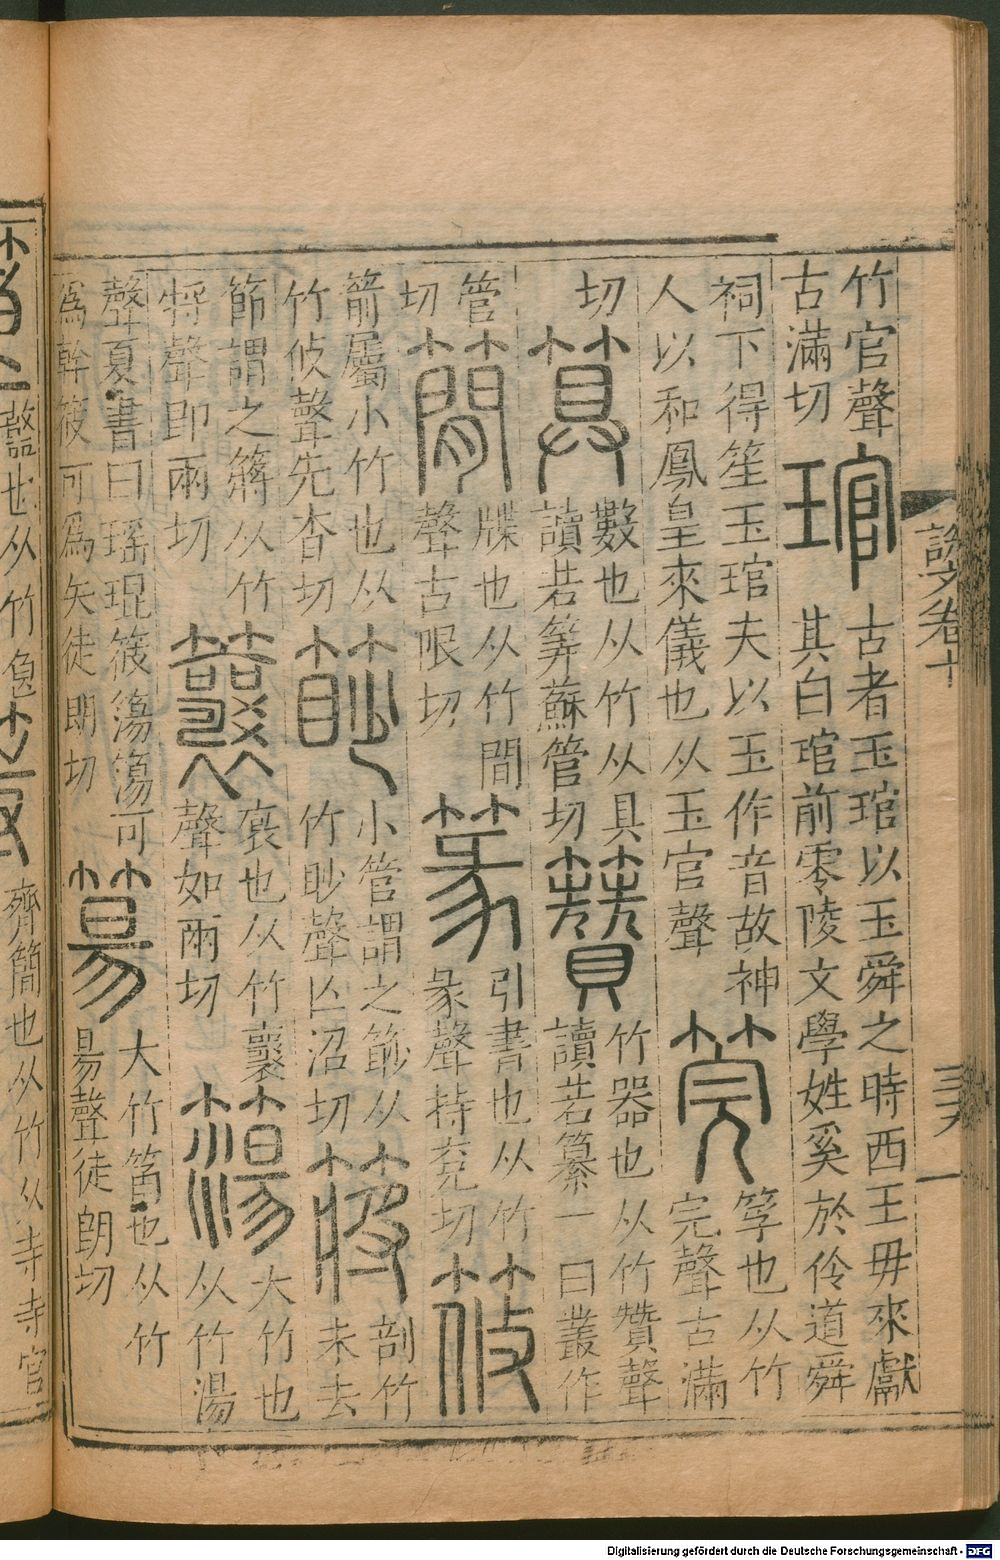 竹官聲
古滿切
琯
古者玉琯以玉舜之時西王毋來獻
其白琯前零陵文學姓奚於伶道舜
祠下得笙玉琯夫以玉作音故神
人以和鳳皇來儀也从玉官聲
筦
筟也从竹
完聲古滿
切
算
數也从竹从具
讀若筭蘇管切
籫
竹器也从竹贊聲
讀若纂一曰叢作
管
切
簡
牒也从竹間
聲古限切
篆
引書也从竹
彖聲持兖切
筱
箭屬小竹也从
竹攸聲先杳切
篎
小管謂之篎从
竹眇聲亾沼切
䉃
剖竹
未去
節謂之䉃从竹
將聲即兩切
䉴
裛也从竹襄
聲如兩切
簜
大竹也
从竹湯
聲夏書曰瑤琨筱簜簜可
爲幹筱可爲矢徒朗切
𥯕
大竹筩也从竹
昜聲徒朗切
說文卷十
三六
一
齊簡也从竹从寺寺官
Digitalisierung gefördert durch die Deutsche Forschungsgemeinschaft - DFG